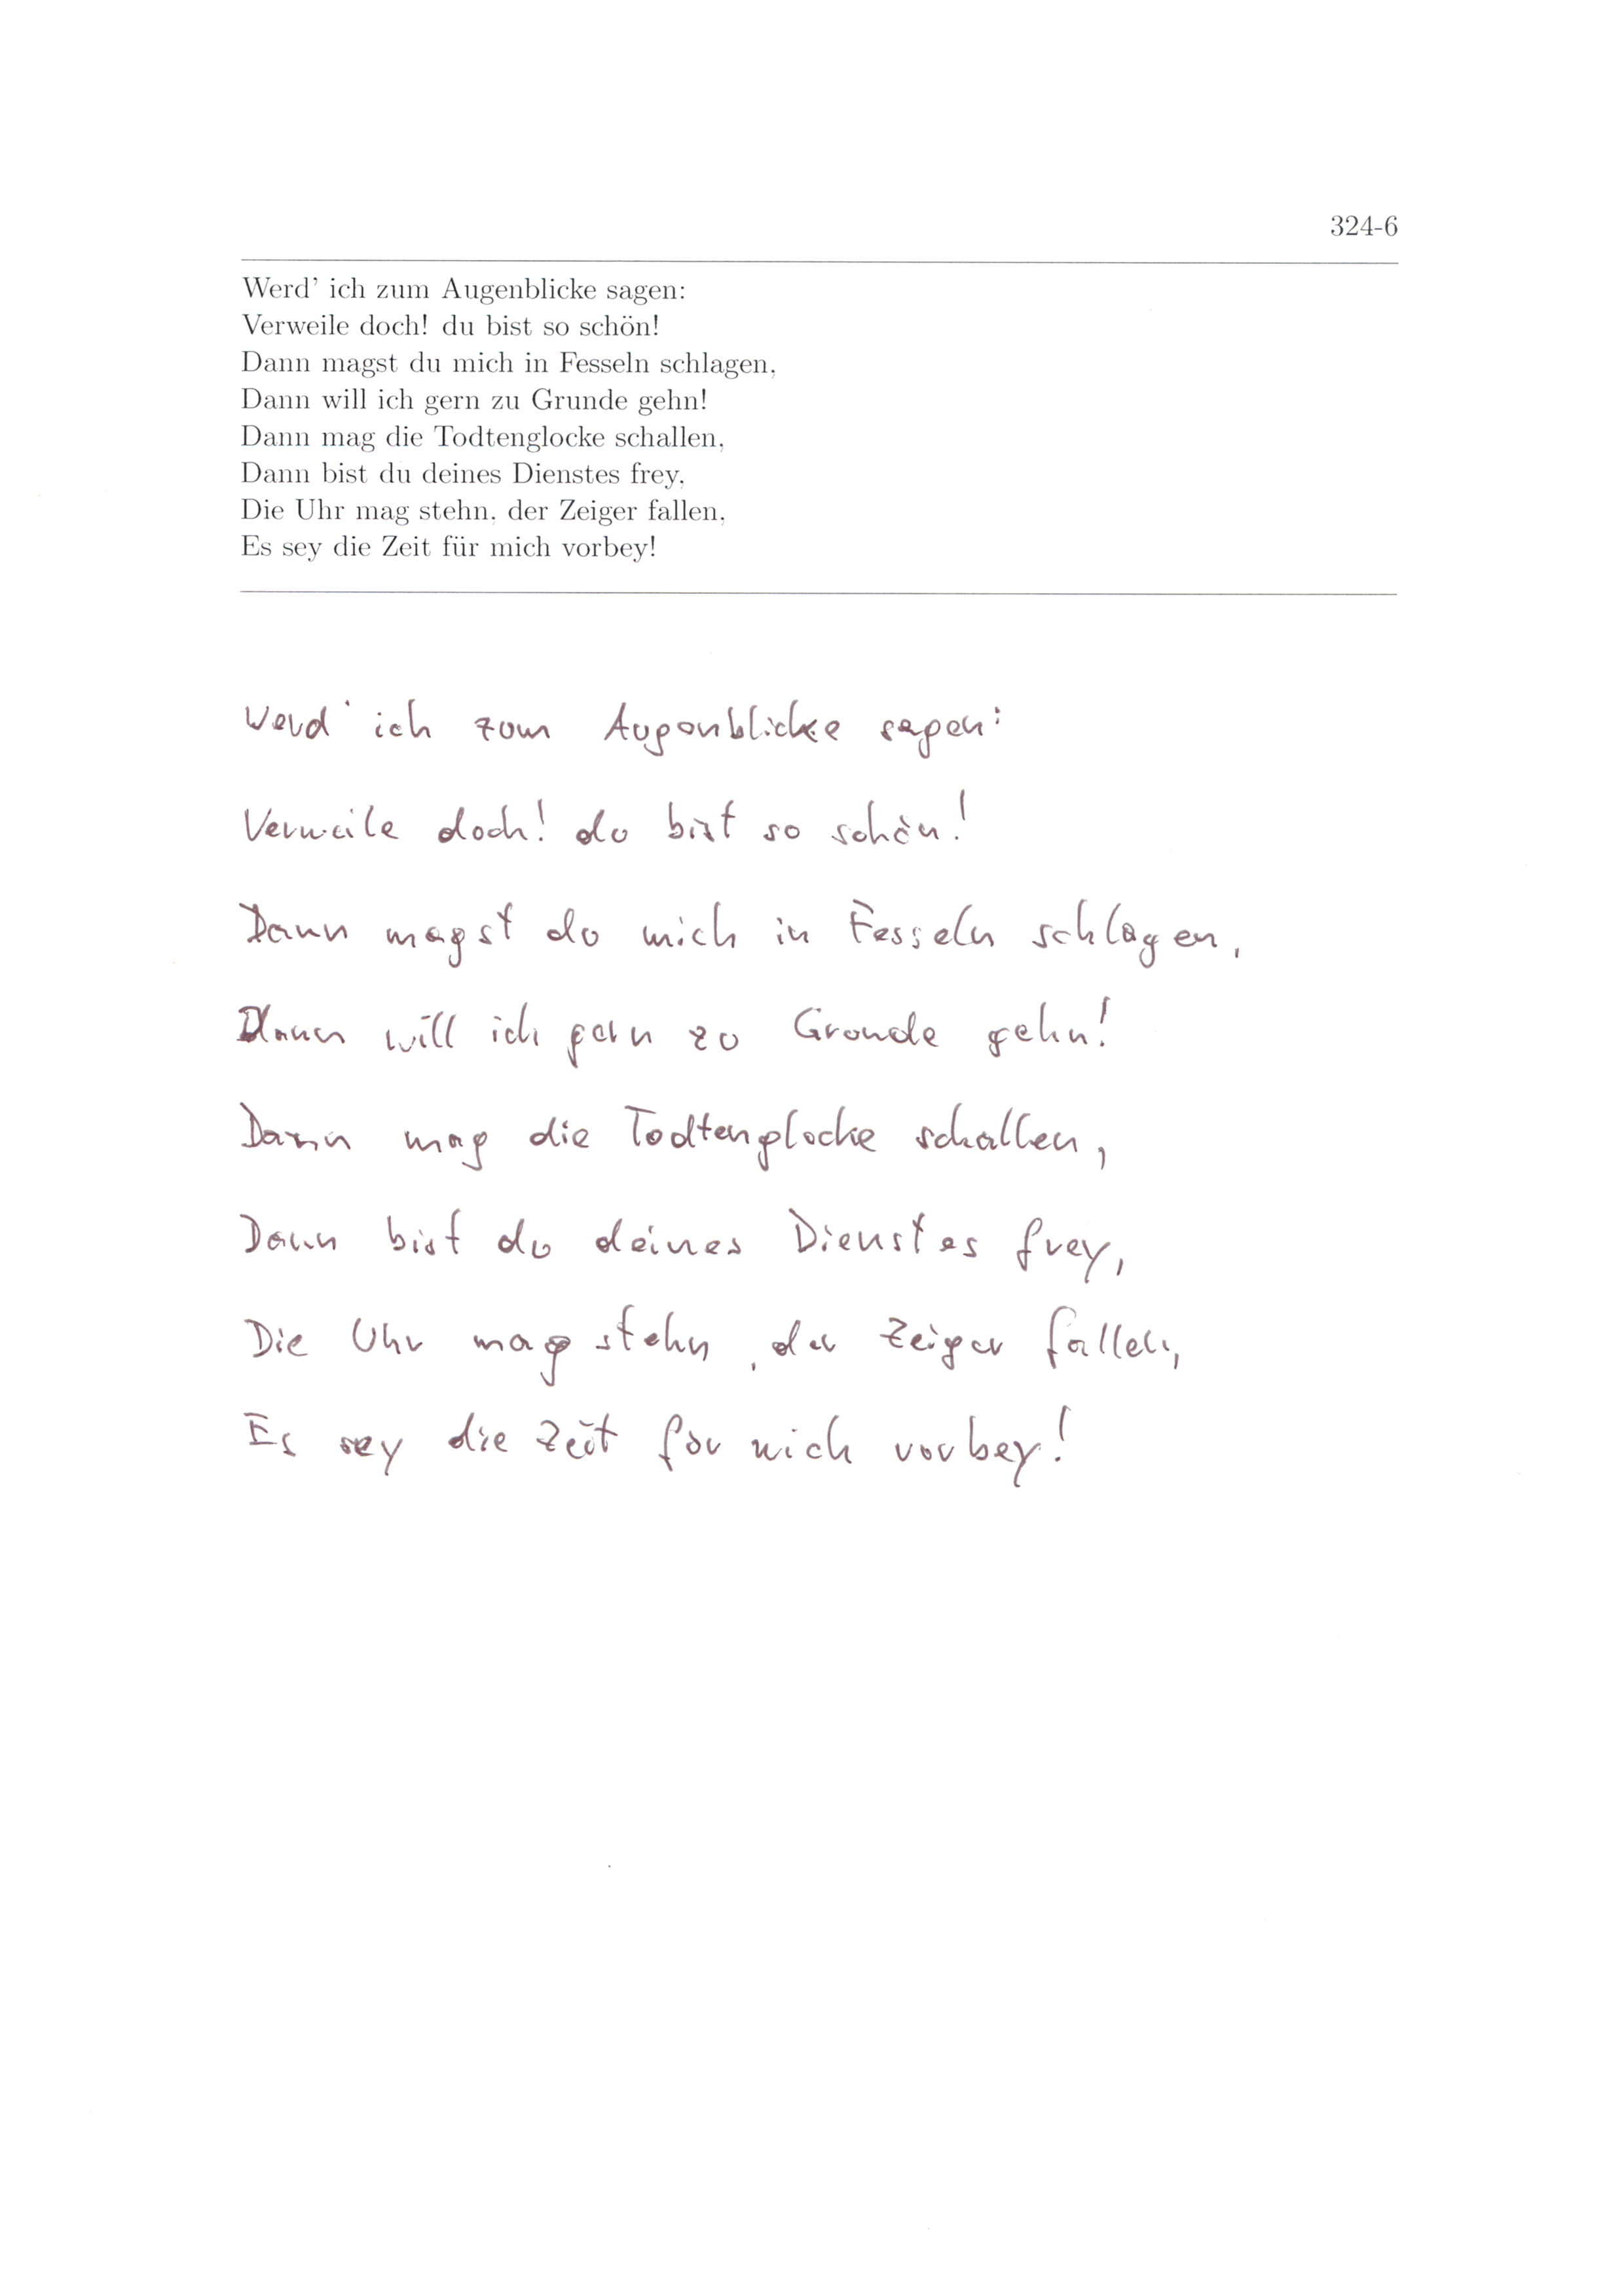 324-6
Werd' ich zum Augenblicke sagen:
Verweile doch! du bist so schön!
Dann magst du mich in Fesseln schlagen,
Dann will ich gern zu Grunde gehn!
Dann mag die Todtenglocke schallen,
Dann bist du deines Dienstes frey,
Die Uhr mag stehn, der Zeiger fallen,
Es sey die Zeit für mich vorbey!
Werd' ich zum Augenblicke sagen:
Verweile doch! du bist so schön!
Dann magst du mich in Fesseln schlagen,
Dann will ich gern zu Grunde gehn!
Dann mag die Todtenglocke schallen,
Dann bist du deines Dienstes frey,
Die Uhr mag stehn, der Zeiger fallen,
Es sey die Zeit für mich vorbey!